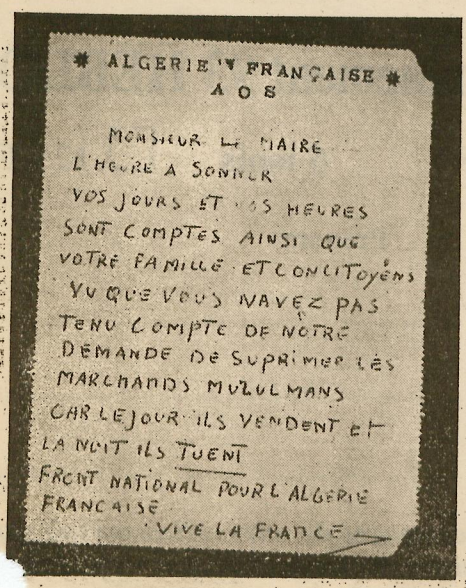 * ALGERIE FRANÇAISE *
A O S
MONSIEUR LE MAIRE
L'HEURE A SONNER
VOS JOURS ET VOS HEURES
SONT COMPTES AINSI QUE
VOTRE FAMILLE ET CONCITOYÉNS
VU QUE VOUS NAVEZ PAS
TENU COMPTE DE NOTRE
DEMANDE DE SUPRIMER LES
MARCHANDS MUZULMANS
CAR LE JOUR ILS VENDENT ET
LA NUIT ILS TUENT
FRONT NATIONAL POUR L'ALGERIE
FRANCAISE
VIVE LA FRANCE